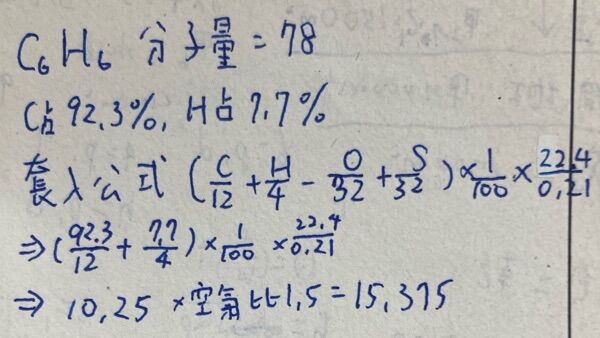 C₆H₆ 分子量 = 78
C占 92.3%, H占 7.7%
套入公式 (C/12 + H/4 - O/32 + S/32) × 1/100 × 22.4/0.21
⇒ (92.3/12 + 7.7/4) × 1/100 × 22.4/0.21
⇒ 10.25 × 空氣比1.5 = 15.375